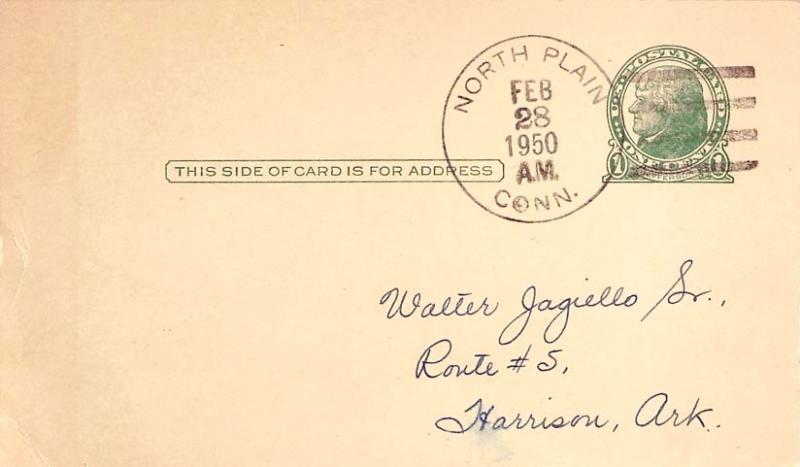 NORTH PLAIN
FEB
28
1950
A.M.
CONN.
U.S. POSTAGE
ONE CENT
1 1
JEFFERSON
THIS SIDE OF CARD IS FOR ADDRESS
Walter Jagiello Sr.,
Route # 5,
Harrison, Ark.